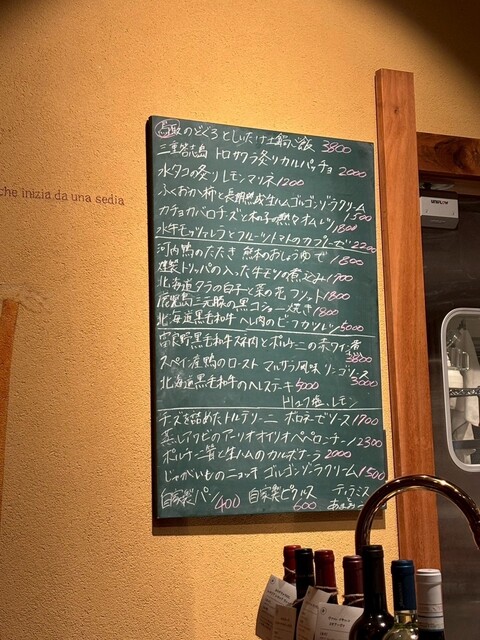 che inizia da una sedia
鳥取 のどぐろ としいたけ土鍋ご飯 3800
三重答志島 トロサワラ炙りカルパッチョ 2000
水タコの炙りレモンマリネ 1200
ふくおか柿と長期熟成生ハムゴルゴンゾラクリーム 1500
カチョカバロチーズと和子の熱々オムレツ 1800
水牛モッツァレラとフルーツトマトのカプレーゼ 2200
河内鴨のたたき 熊本のおしょうゆで 1800
燻製トリッパの入った牛モツの煮込み 1900
北海道タラの白子と菜の花フリット 1800
鹿児島三元豚の黒コショー焼き 1800
北海道黒毛和牛ヘレ肉のビーフカツレツ 5000
富良野黒毛和牛スネ肉とポルチーニの赤ワイン煮 3800
スペイン産鴨のロースト マルサラ風味 リンゴソース 3000
北海道黒毛和牛のヘレステーキ 5000
トリュフ塩、レモン
チーズを詰めたトルテリーニ ボロネーゼソース 1700
蒸しアワビのアーリオオイリオペペロンチーノ 2300
ポルチーニ茸と生ハムのカルボナーラ 2000
じゃがいものニョッキ ゴルゴンゾーラクリーム 1500
自家製パン 400 自家製ピクルス 600 ティラミス